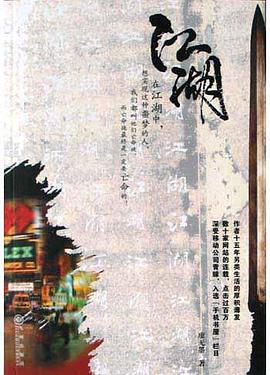 江湖
在江湖中，
想实现这种梦的人，
我们都叫他们亡命徒
而亡命徒最终是一定要亡命的！
江湖
江湖
江湖
作者十五年另类生活的厚积薄发
数十家网站的连载，点击过百万
深受移动公司青睐，入选“手机书屋”栏目
无墨 著
LEX